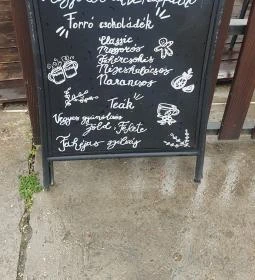 Forró csokoládék
Classic
Mogyorós
Fehércsokis
Mézeskalácsos
Narancsos
Teák
Vegyes gyümölcsös
Zöld, Fekete
Fahéjas szilvás